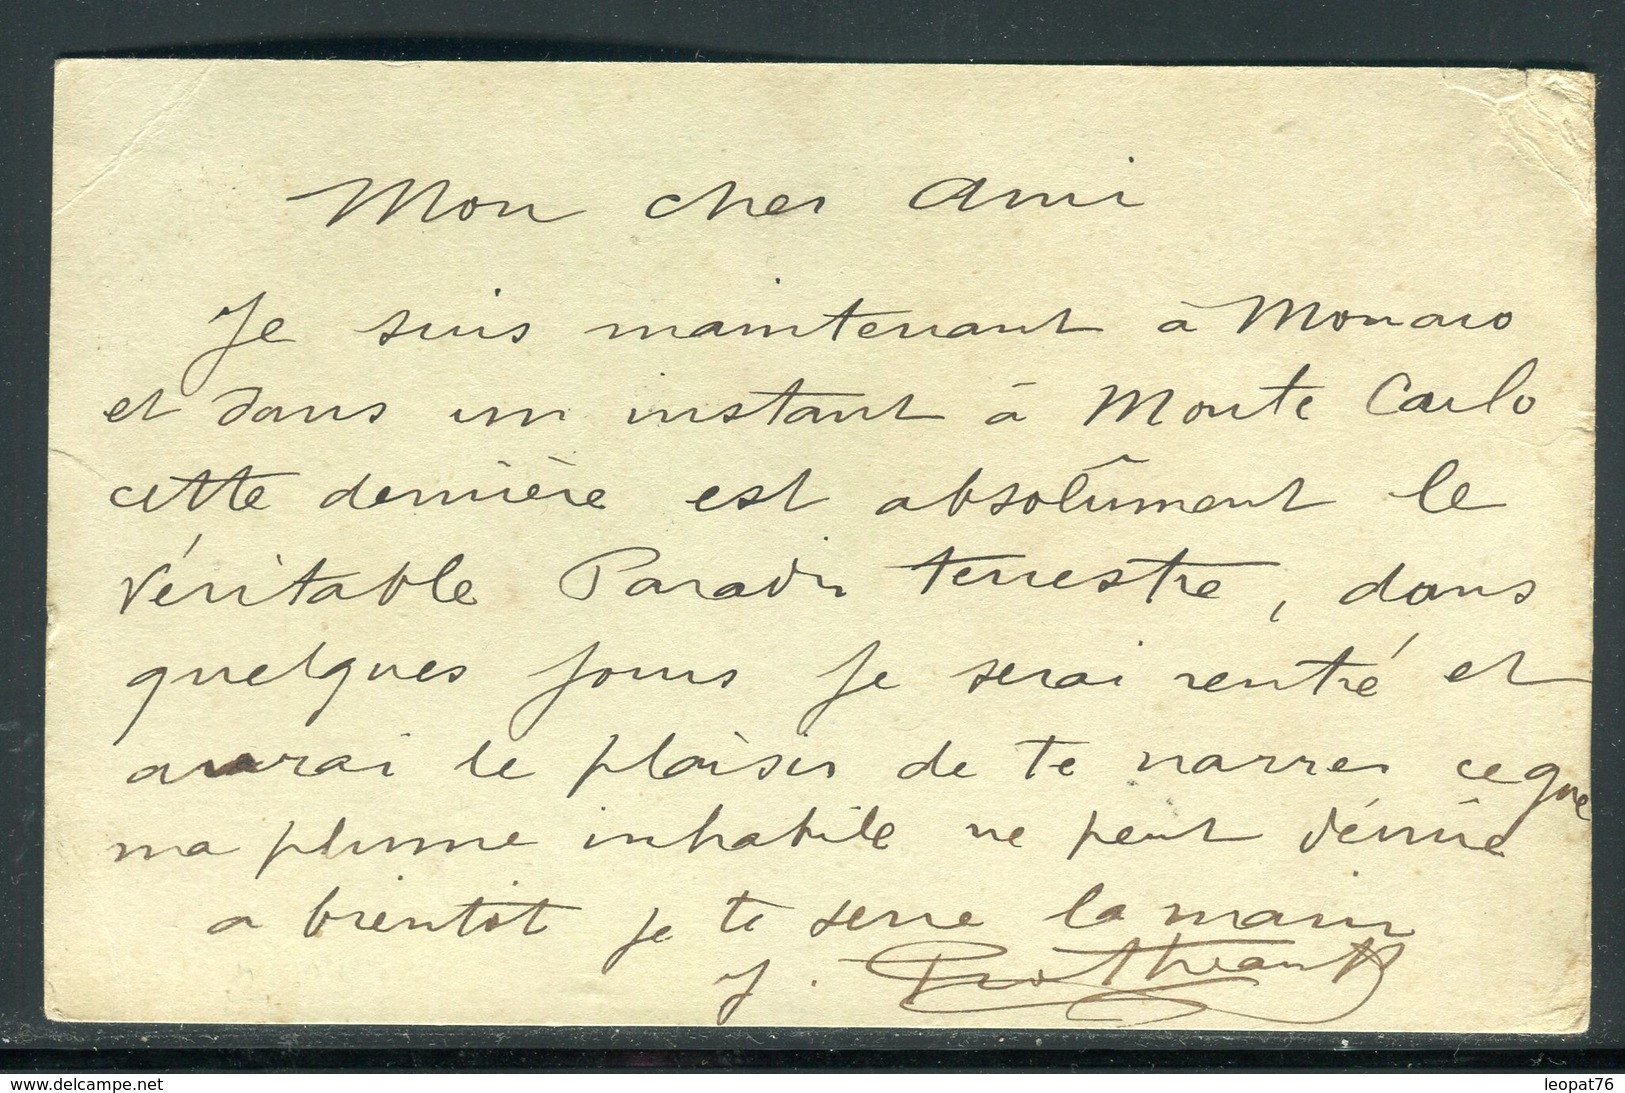 Mon cher Ami
Je suis maintenant à Monaco
et dans un instant à Monte Carlo
cette dernière est absolûment le
véritable Paradis terrestre, dans
quelques jours je serai rentré et
aurai le plaisir de te narrer ce que
ma plume inhabile ne peut décrire
a bientôt je te serre la main
J.
www.delcampe.net
leopat76